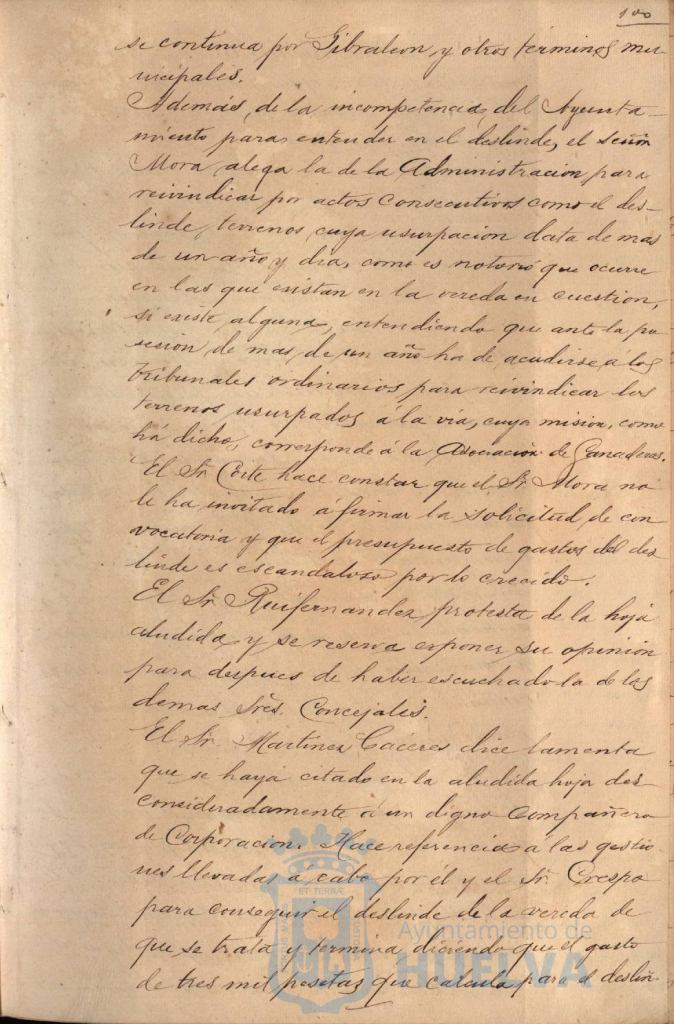 100
se continua por Gibraleon y otros términos mu-
nicipales.
Además, de la incompetencia, del Ayunta-
miento para entender en el deslinde, el señor
Mora alega la de la Administracion para
reivindicar por actos consecutivos como el des-
linde, terrenos cuya usurpacion data de mas
de un año y dia, como es notorio que ocurre
en las que existan en la vereda en cuestion,
si existe alguna, entendiendo que ante la po
sesion, de mas, de un año ha de acudirse á los
Tribunales ordinarios para reivindicar los
terrenos usurpados á la via, cuya mision, como
há dicho, corresponde á la Asociacion de Ganaderos.
El Sr. Corte hace constar que el Sr. Mora no
le ha invitado á firmar la solicitud de con
vocatoria y que el presupuesto de gastos del des
linde es escandaloso por lo crecido.
El Sr. Ruifernandez protesta de la hoja
aludida y se reserva exponer su opinión
para despues de haber escuchado la de los
demas Sres. Concejales.
El Sr. Martinez Cáceres dice lamenta
que se haya citado en la aludida hoja des-
consideradamente á un digno compañero
de Corporacion. Hace referencia á las gestio-
nes llevadas á cabo por él y el Sr. Crespo
para conseguir el deslinde de la vereda de
que se trata y termina diciendo que el gasto
de tres mil pesetas que calcula para el deslin-
ET TERRÆ
Ayuntamiento de
HUELVA